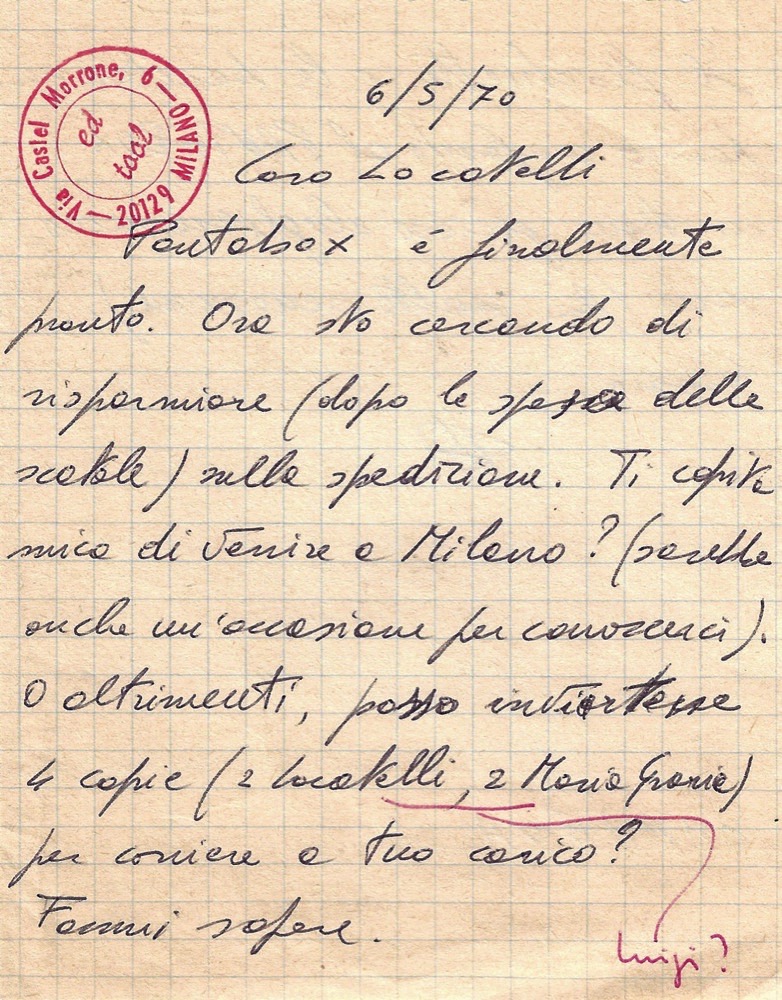 Via Castel Morrone, 6 — 20129 MILANO —
ed
tool
6/5/70
Caro Locatelli
Pantabox è finalmente
pronto. Ora sto cercando di
risparmiare (dopo le spese delle
scatole) sulla spedizione. Ti capita
mica di venire a Milano? (sarebbe
anche un'occasione per conoscerci).
O altrimenti, posso inviartene
4 copie (2 Locatelli, 2 Maria Grazia)
per corriere a tuo carico?
Fammi sapere.
Luigi?